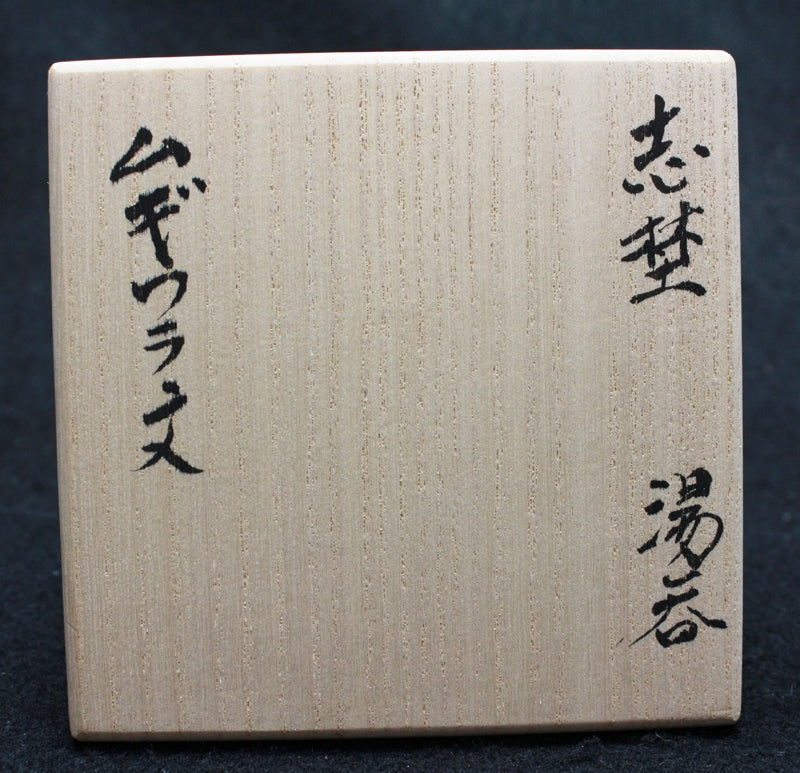 志埜 湯呑
ムギワラ文